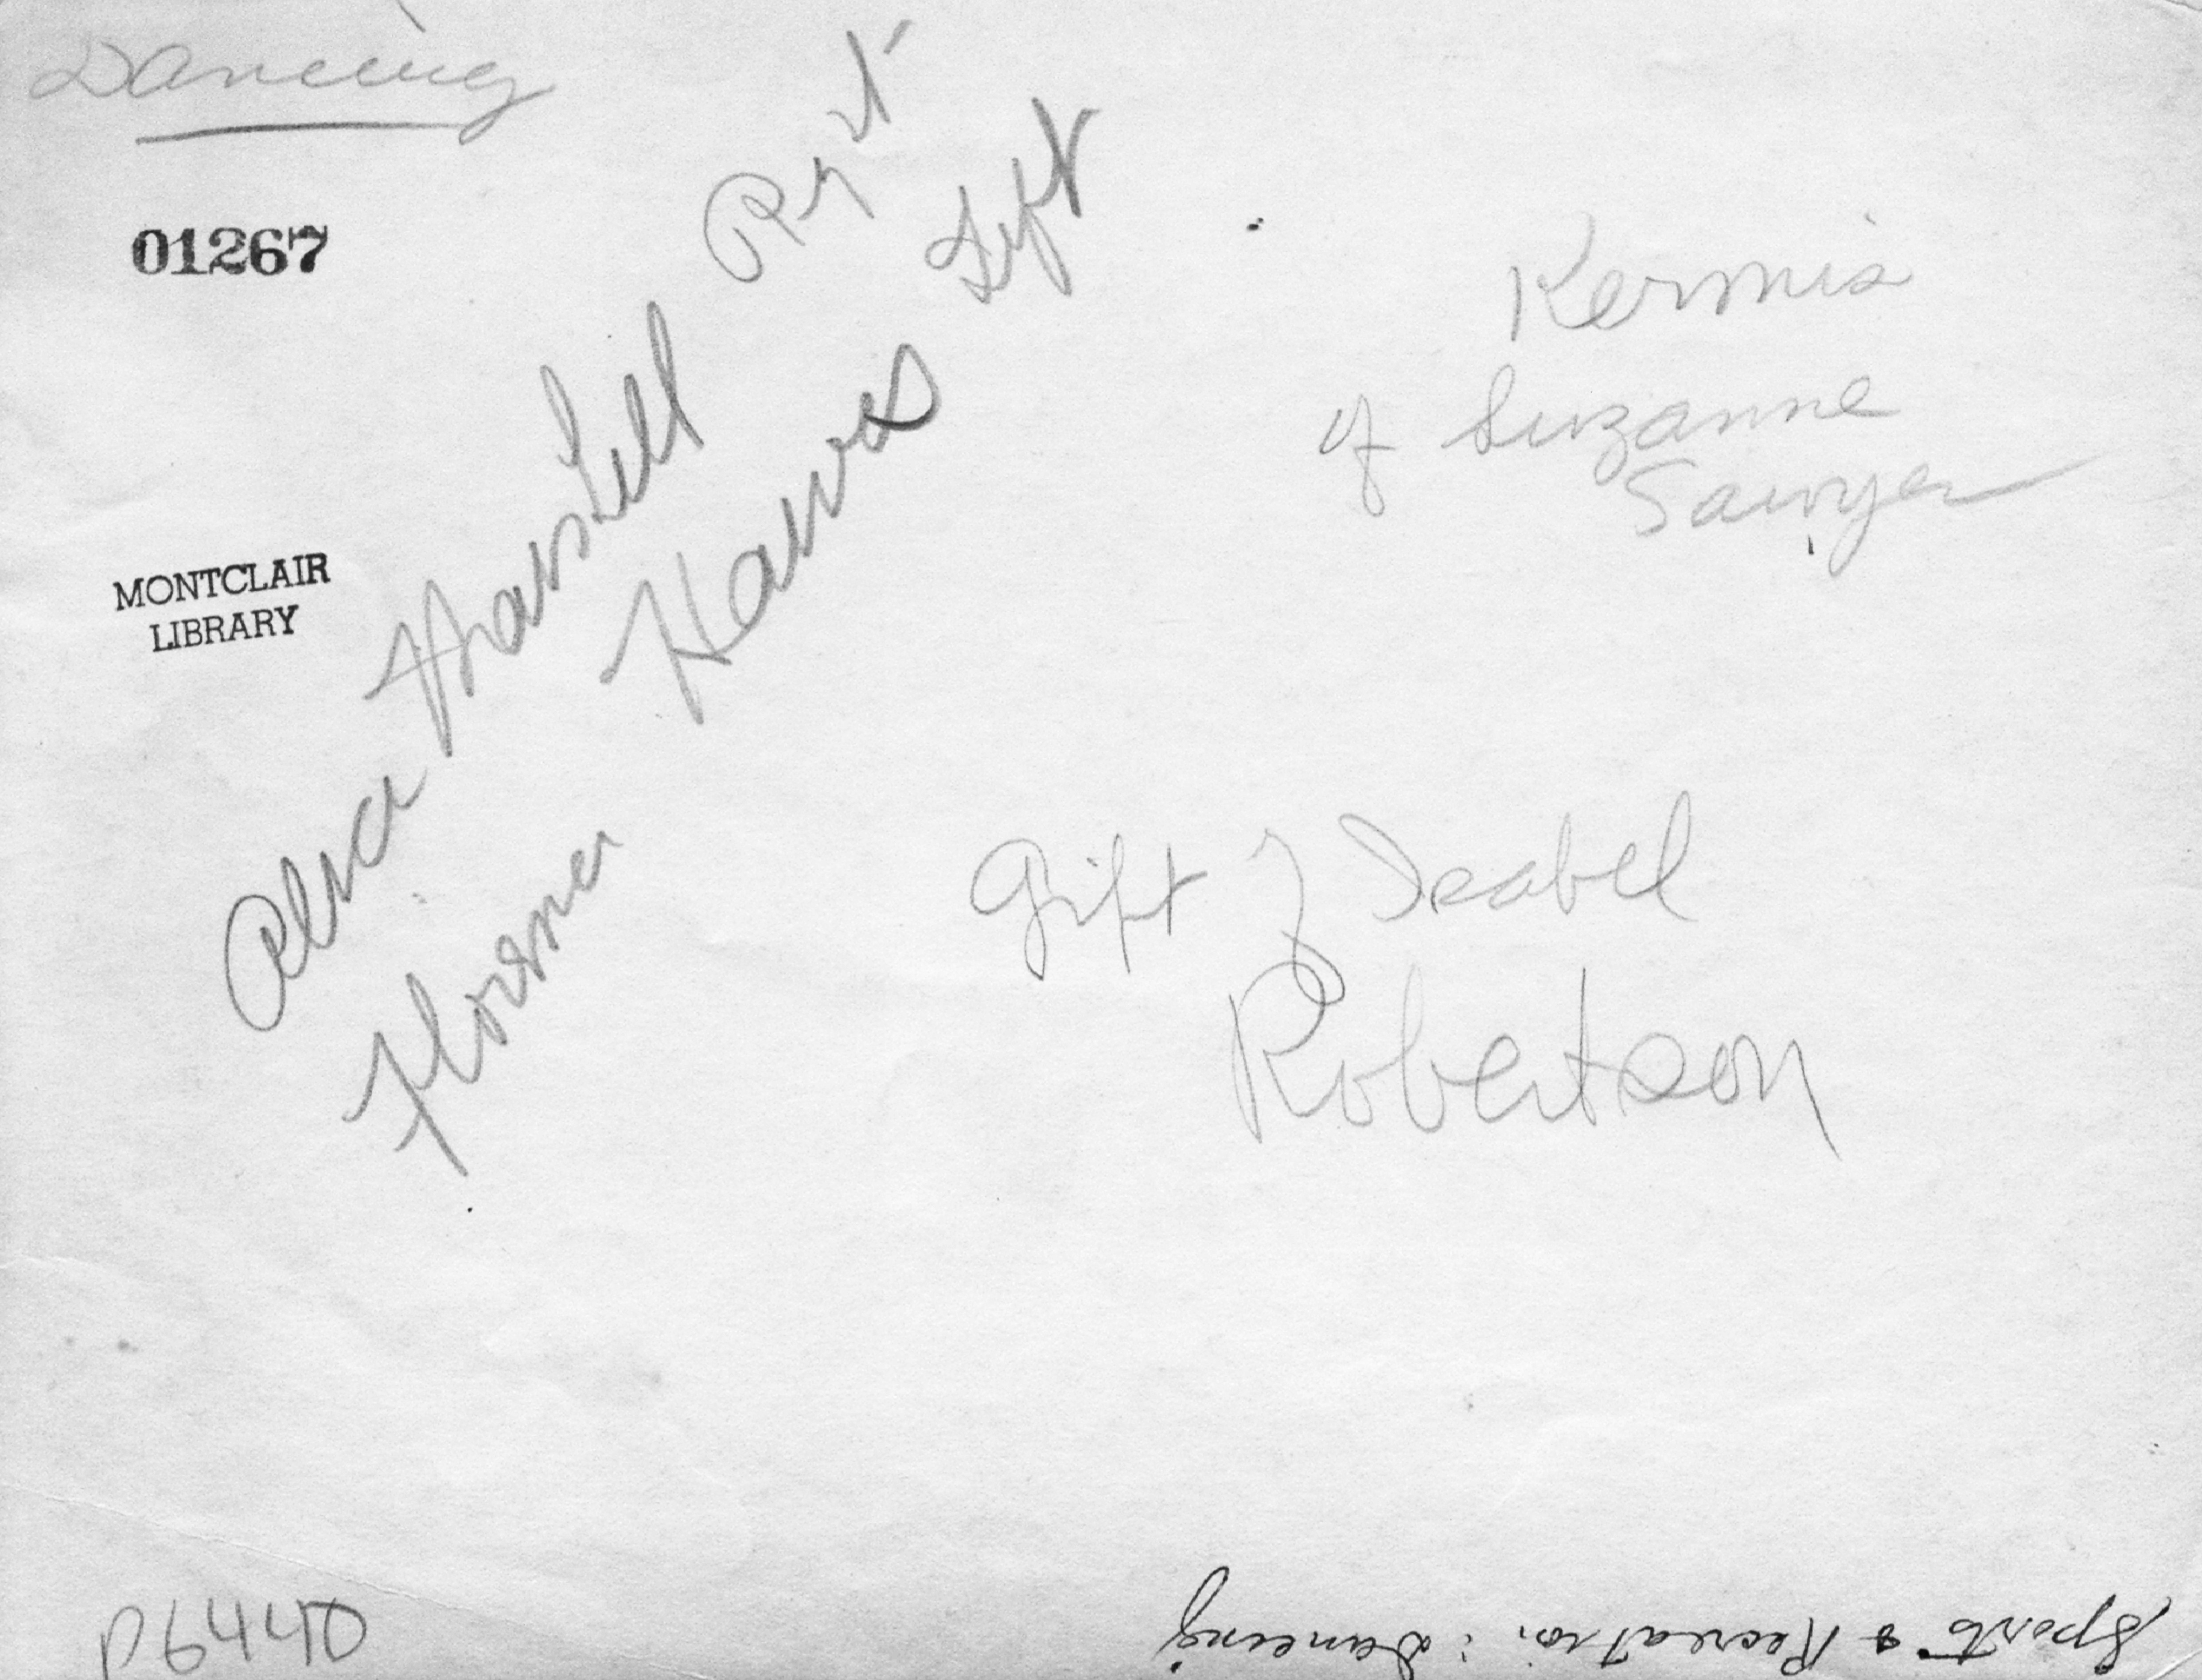 Dancing
01267
MONTCLAIR
LIBRARY
Alva Rgt
Left
Kermis
of Suzanne
Sawyer
Gift of Isabel
Robertson
P6440
Sports & Recreation: Dancing